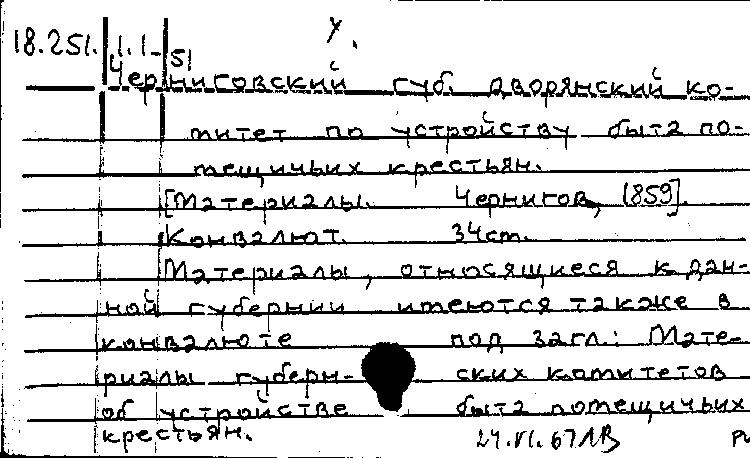 У.
18.251.1.1-51
Черниговский губ. дворянский ко-
митет по устройству быта по-
мещичьих крестьян.
[Материалы. Чернигов, 1859].
Конволют. 34см.
Материалы, относящиеся к дан-
ной губернии имеются также в
конволюте под загл.: Мате-
риалы губерн- ских комитетов
об устройстве быта помещичьих
крестьян.
24.VI.67